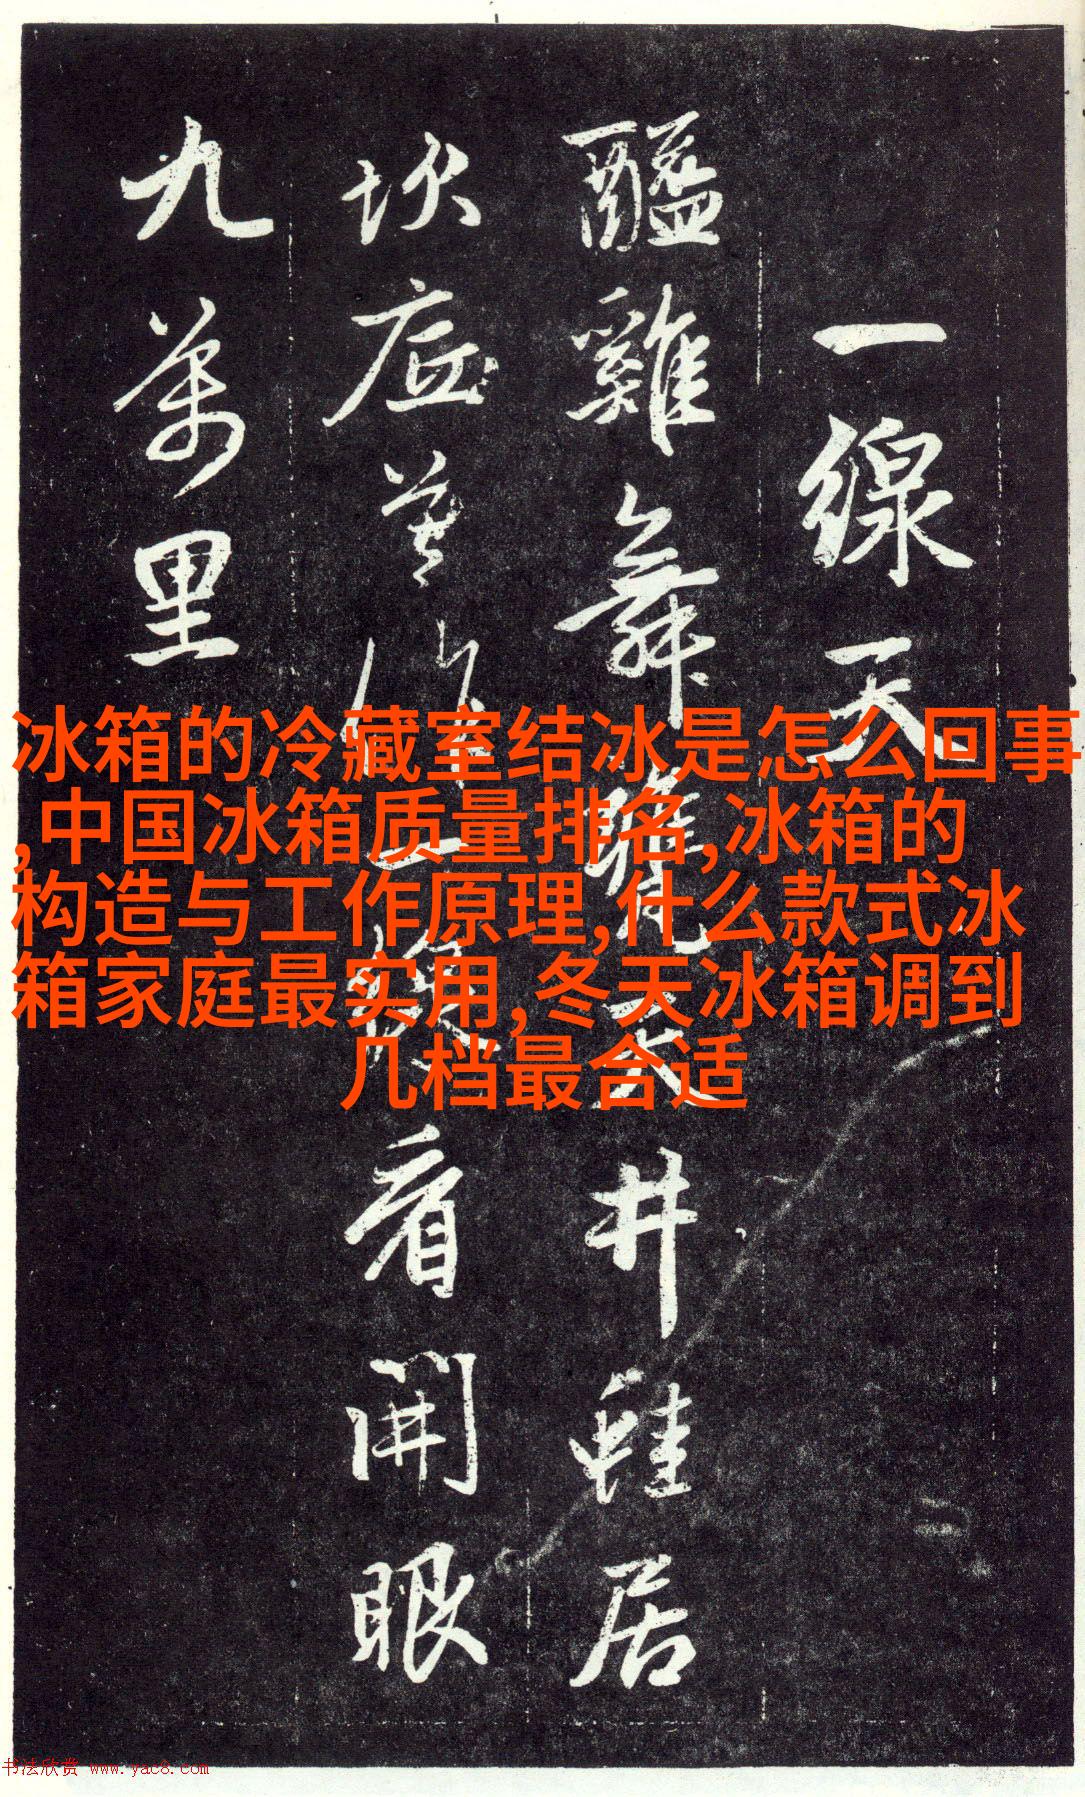 一線天
醯雞舞甕天井蛙居
坎底莫作一線看開眼
九萬里
冰箱的冷藏室结冰是怎么回事
,中国冰箱质量排名,冰箱的
构造与工作原理,什么款式冰
箱家庭最实用,冬天冰箱调到
几档最合适
书法欣赏 www.yac8.com